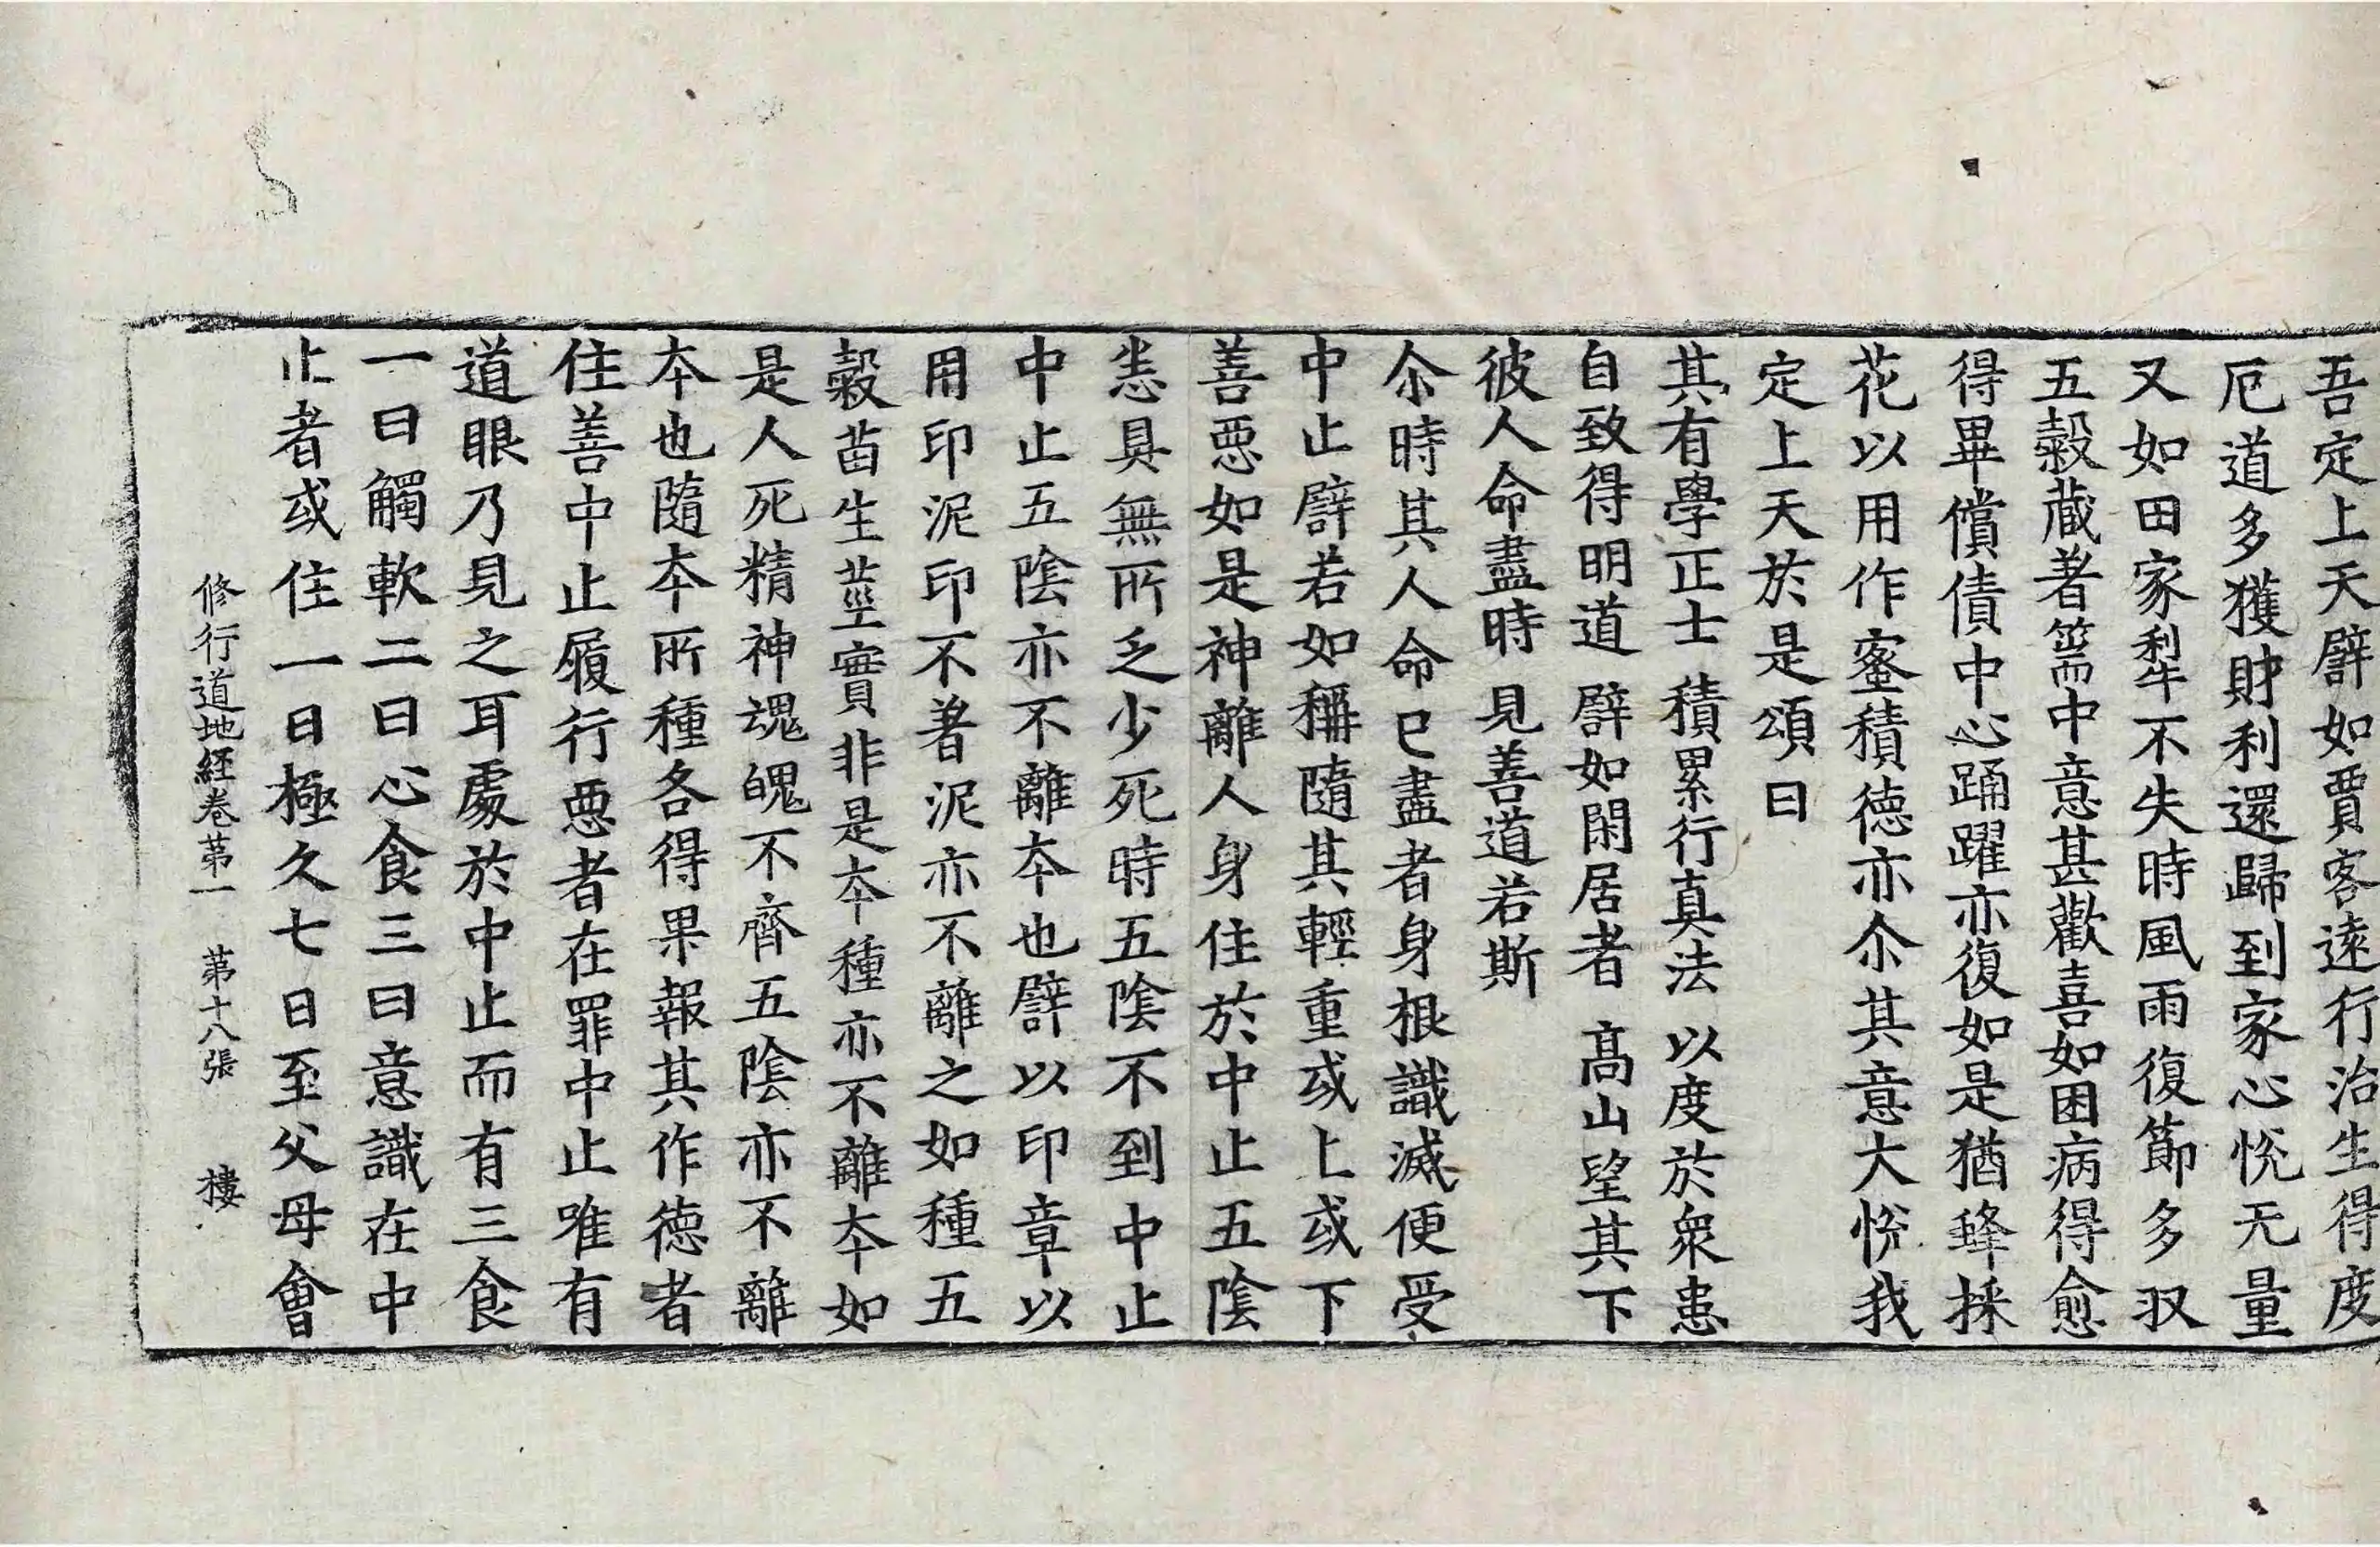 吾定上天譬如賈客遠行治生得度
厄道多獲財利還歸到家心悅无量
又如田家犁不失時風雨復節多収
五糓蔵著篅中意甚歡喜如困病得愈
得畢償債中心踊躍亦復如是猶蜂採
花以用作蜜積德亦尒其意大悅我
定上天於是頌曰
其有學正士　積累行真法　以度於衆患
自致得明道　譬如閑居者　髙山望其下
彼人命盡時　見善道若斯
尒時其人命已盡者身根識滅便受
中止譬若如稱隨其輕重或上或下
善惡如是神離人身住於中止五陰
悉具無所乏少死時五陰不到中止
中止五陰亦不離夲也譬以印章以
用印泥印不著泥亦不離之如種五
糓苗生莖實非是夲種亦不離夲如
是人死精神魂魄不齊五陰亦不離
夲也隨夲所種各得果報其作德者
住善中止履行惡者在罪中止唯有
道眼乃見之耳處於中止而有三食
一曰觸軟二曰心食三曰意識在中
止者或住一日極久七日至父母會
修行道地經卷第一　第十八張　樓